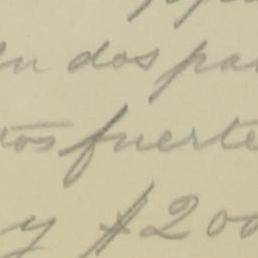 en dos pa
tos fuerte
y $200